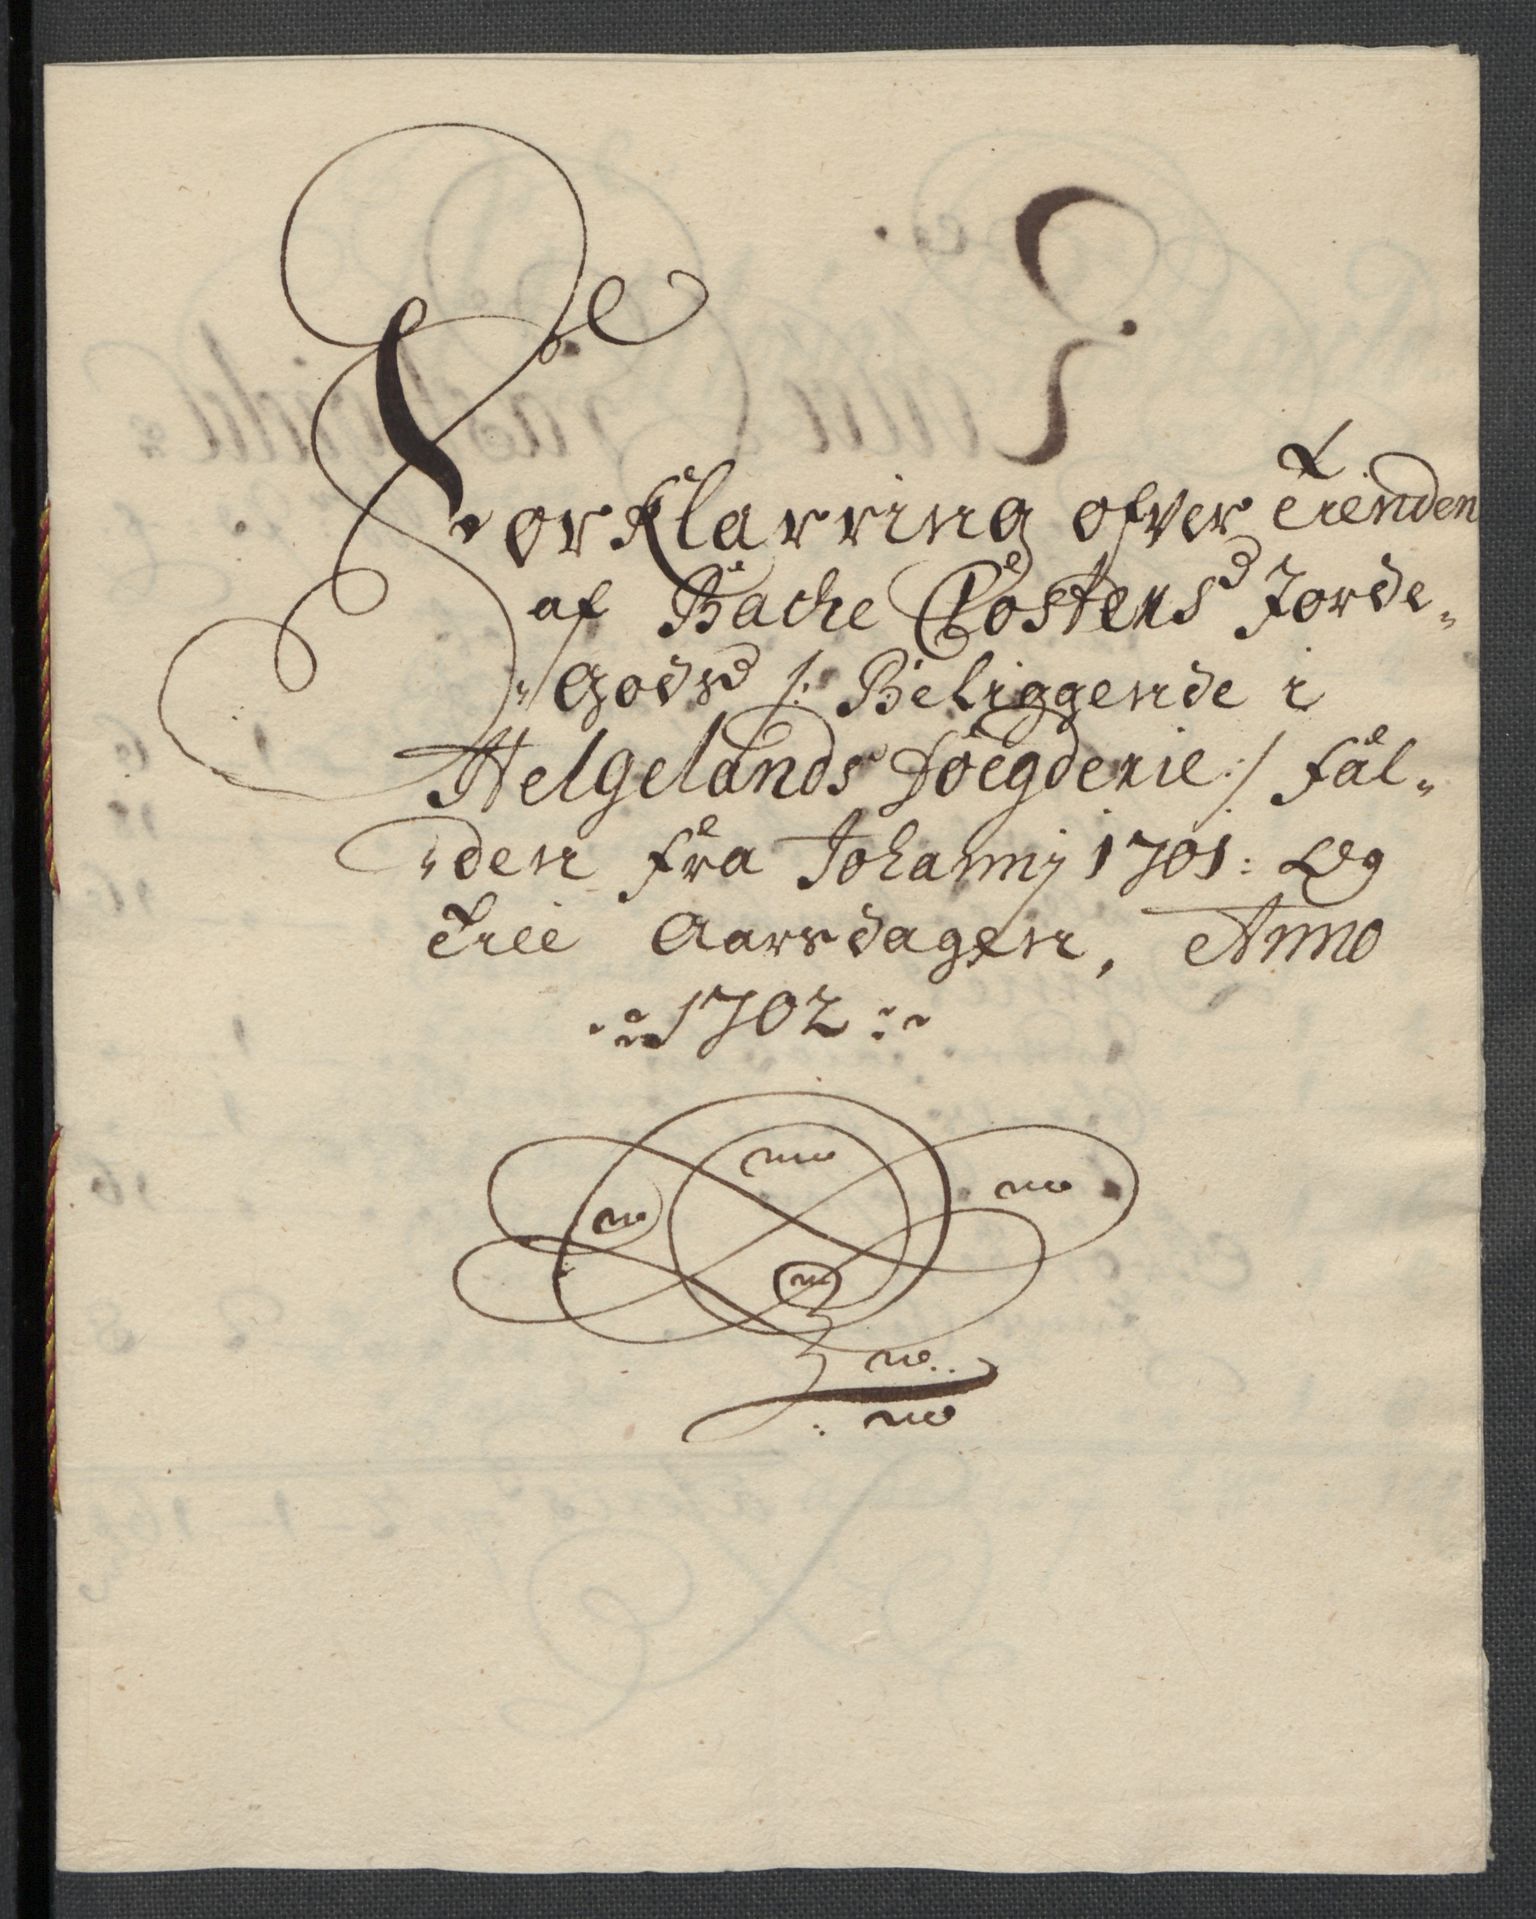 E
Forklarring ofver Tienden
af Backe Closters Jorde„
„Gods /: Beliggende i
Helgelands Foegderie :/ fal„
„den fra Johannj 1701: Og
Til Aarsdagen, Anno
1702